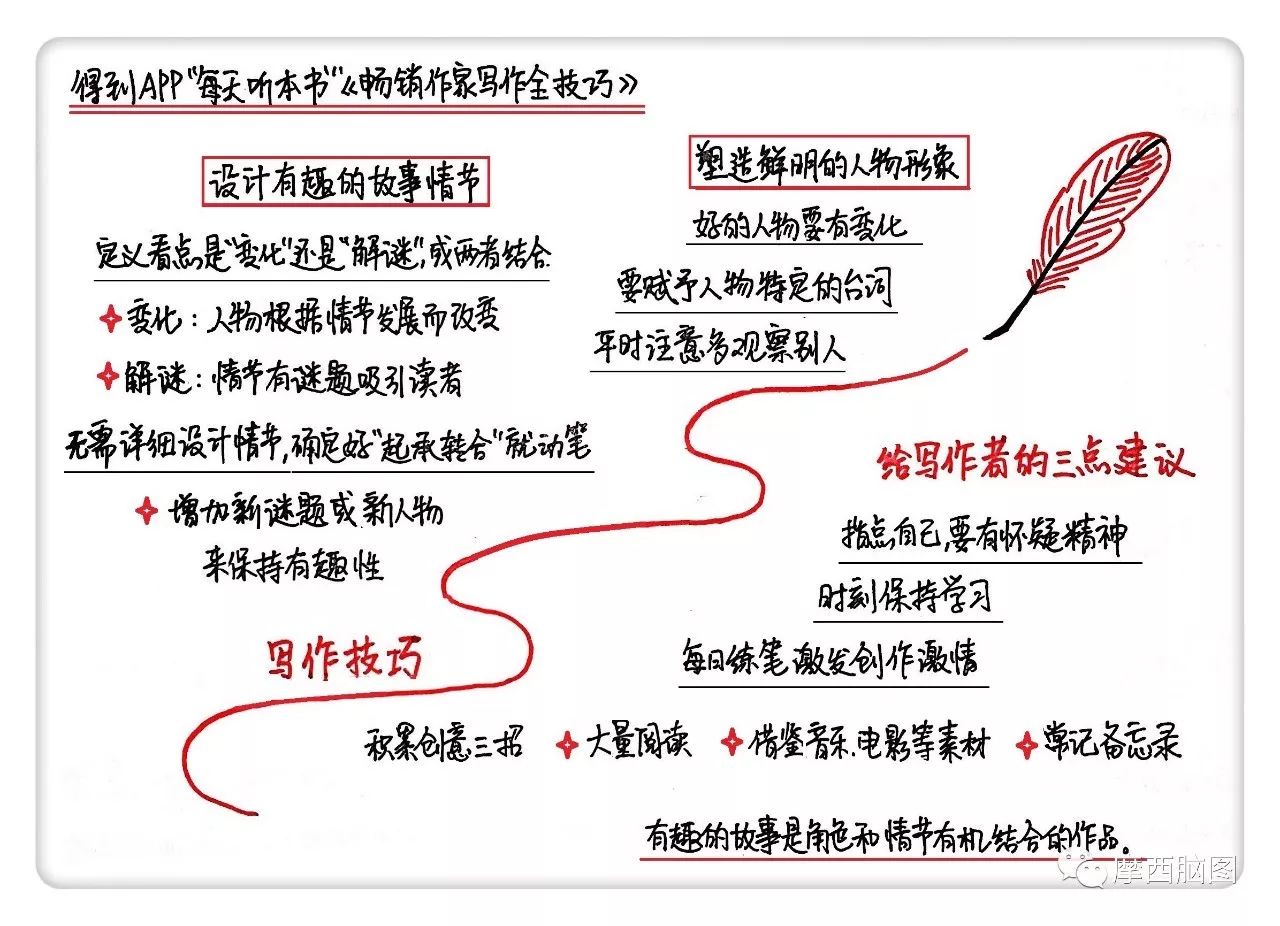 得到APP“每天听本书”《畅销作家写作全技巧》
设计有趣的故事情节
定义看点是“变化”还是“解谜”,或两者结合
变化:人物根据情节发展而改变
解谜:情节有谜题吸引读者
无需详细设计情节,确定好“起承转合”就动笔
增加新谜题或新人物
来保持有趣性
写作技巧
塑造鲜明的人物形象
好的人物要有变化
要赋予人物特定的台词
平时注意多观察别人
给写作者的三点建议
指点自己,要有怀疑精神
时刻保持学习
每日练笔激发创作激情
积累创意三招 大量阅读 借鉴音乐、电影等素材 常记备忘录
有趣的故事是角色和情节有机结合的作品。
摩西脑图